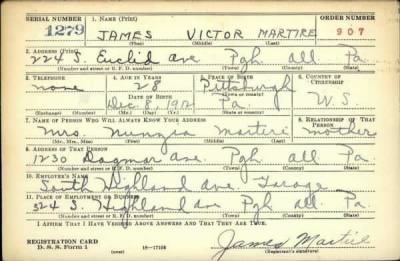 SERIAL NUMBER 1. NAME (Print) ORDER NUMBER
1279 JAMES VICTOR MARTIRE 907
(First) (Middle) (Last)
2. ADDRESS (Print)
224 S. Euclid Ave Pgh. All. Pa.
(Number and street or R. F. D. number) (Town) (County) (State)
3. TELEPHONE 4. AGE IN YEARS 5. PLACE OF BIRTH 6. COUNTRY OF CITIZENSHIP
none 28 Pittsburgh
DATE OF BIRTH (Town or county) U.S.
Dec. 8, 1912 Pa.
(Exchange) (Number) (Mo.) (Day) (Yr.) (State or country)
7. NAME OF PERSON WHO WILL ALWAYS KNOW YOUR ADDRESS 8. RELATIONSHIP OF THAT PERSON
Mrs. Nunzia Martire mother
(Mr., Mrs., Miss) (First) (Middle) (Last)
9. ADDRESS OF THAT PERSON
1230 Dagmar Ave. Pgh. All. Pa.
(Number and street or R. F. D. number) (Town) (County) (State)
10. EMPLOYER'S NAME
South Highland Ave. Garage
11. PLACE OF EMPLOYMENT OR BUSINESS
324 S. Highland Ave Pgh All. Pa.
(Number and street or R. F. D. number) (Town) (County) (State)
I AFFIRM THAT I HAVE VERIFIED ABOVE ANSWERS AND THAT THEY ARE TRUE.
REGISTRATION CARD
D. S. S. Form 1 16—17105 James Martire
(Registrant's signature)